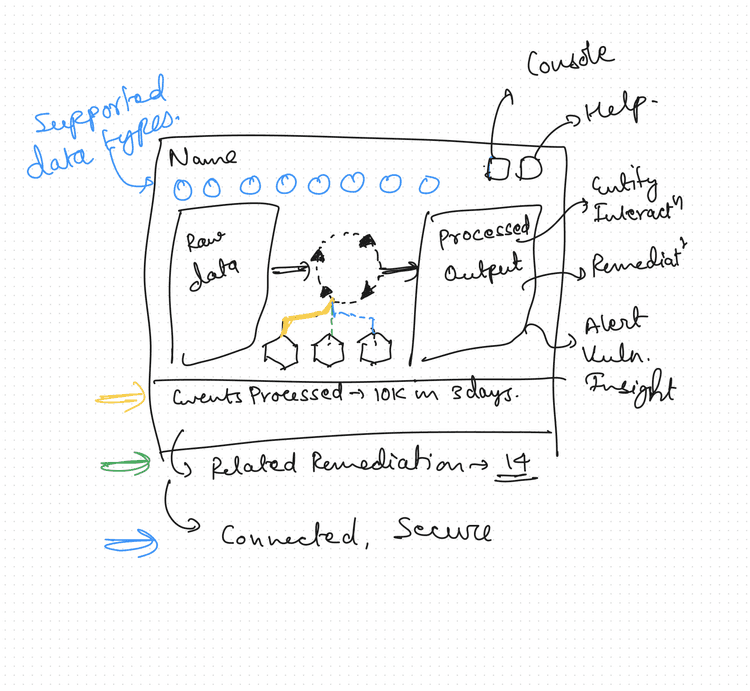 Console
Help.
Supported
data types.
Name
Entity
Interactⁿ
Raw
data
Processed
Output
Remediat²
Alert
Vuln.
Insight
Events Processed → 10K in 3 days.
Related Remediation → 14
Connected, Secure